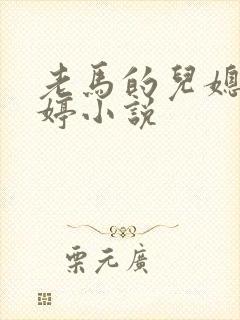 老馬的兒媳
婷小說
栗元廣